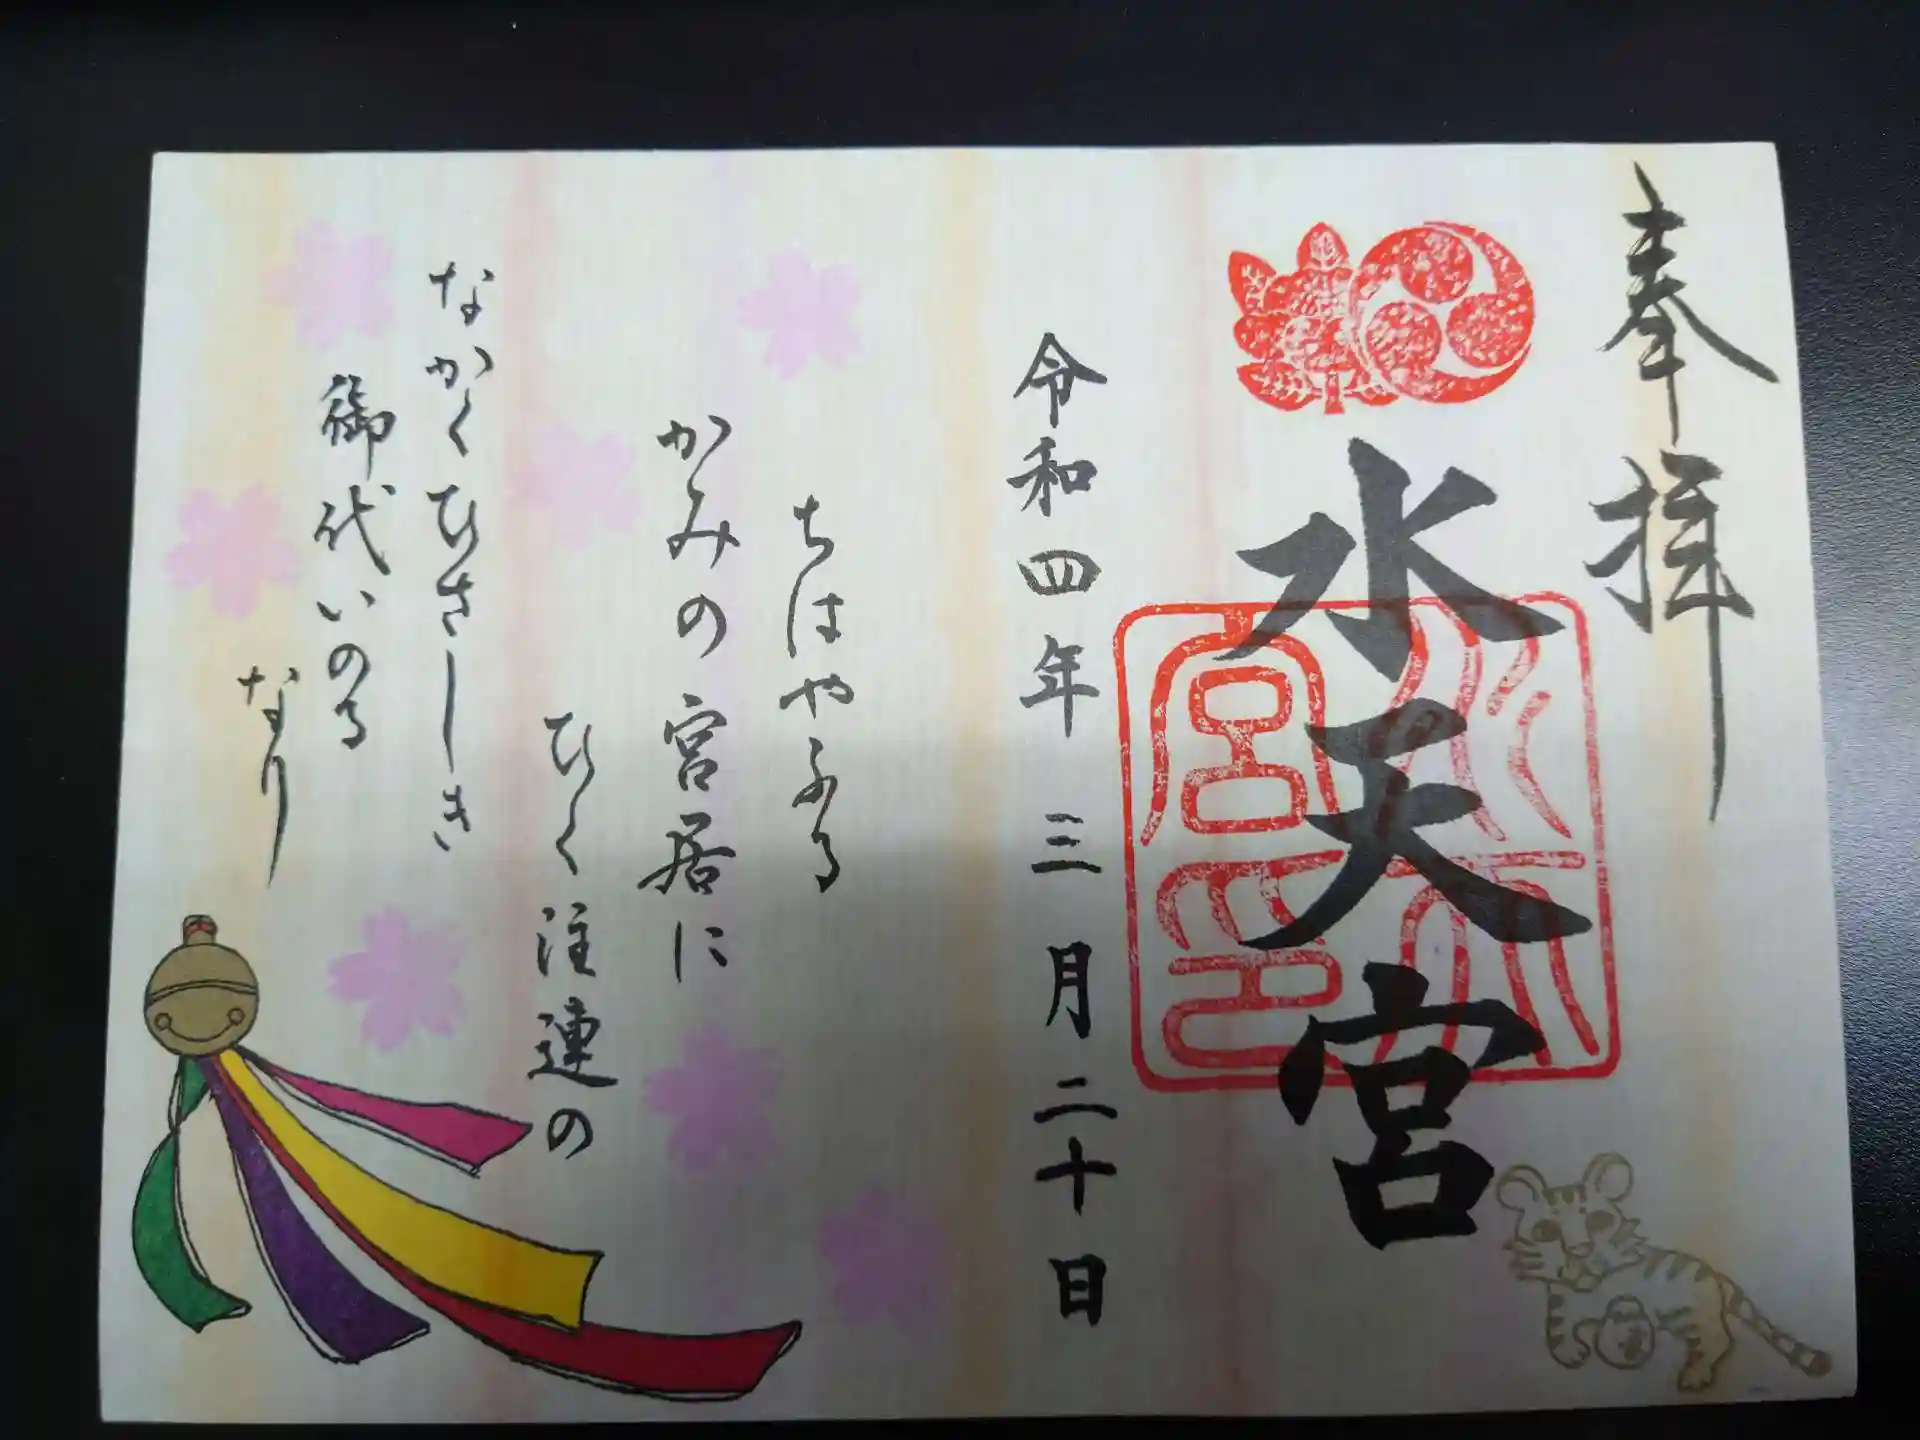 奉拝
水天宮
令和四年三月二十日
ちはやふる
かみの宮居に
ひく注連の
なかくひさしき
御代いのる
なり